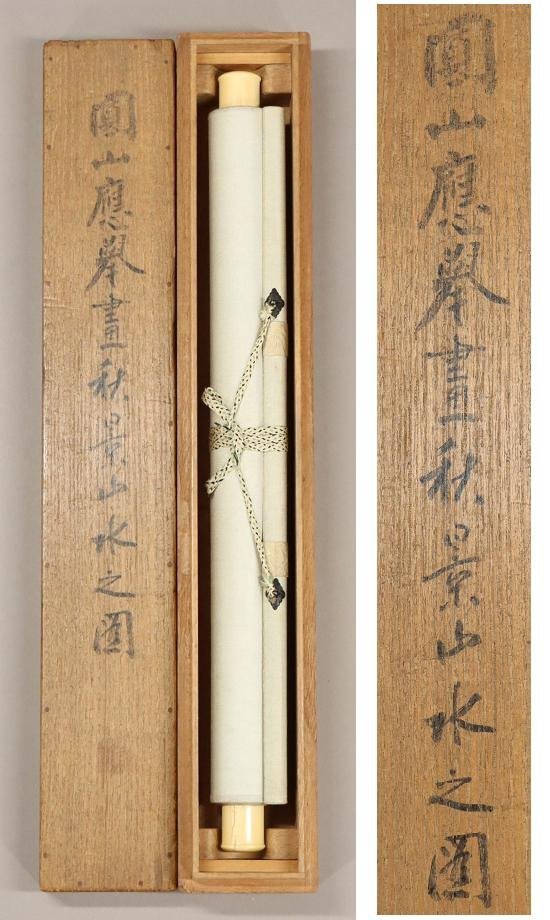 圓山應擧畫秋景山水之圖
圓山應擧畫秋景山水之圖